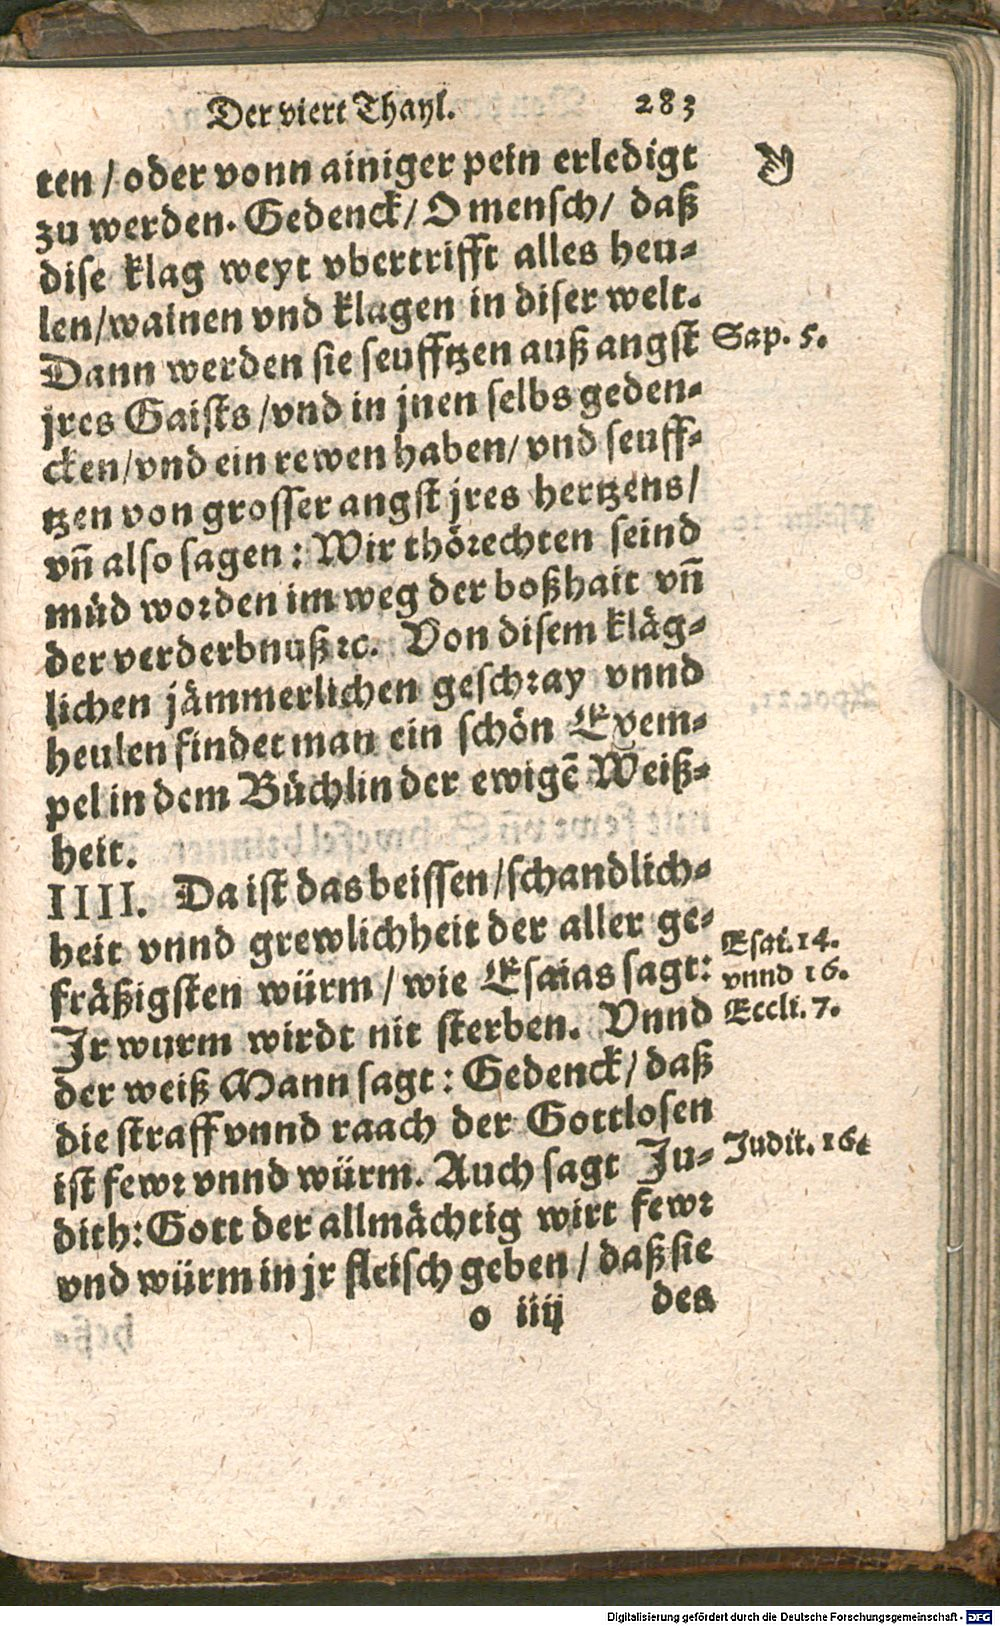 Der viert Thayl. 283
ten / oder vonn ainiger pein erledigt
zu werden. Gedenck / O mensch / daß
dise klag weyt vbertrifft alles heu-
len / wainen vnd klagen in diser welt.
Dann werden sie seufftzen auß angst
jres Gaists / vnd in jnen selbs geden-
cken / vnd ein rewen haben / vnd seuff-
tzen von grosser angst jres hertzens /
vñ also sagen : Wir thörechten seind
müd worden im weg der boßhait vñ
der verderbnuß ꝛc. Von disem kläg-
lichen jämmerlichen geschray vnnd
heulen findet man ein schön Exem-
pel in dem Büchlin der ewigẽ Weiß-
heit.
IIII. Da ist das beissen / schandlich-
heit vnnd grewlichheit der aller ge-
fräßigsten würm / wie Esaias sagt:
Ir wurm wirdt nit sterben. Vnnd
der weiß Mann sagt : Gedenck / daß
die straff vnnd raach der Gottlosen
ist fewr vnnd würm. Auch sagt Ju-
dith: Gott der allmächtig wirt fewr
vnd würm in jr fleisch geben / daß sie
o iiij des
Sap. 5.
Esai. 14.
vnnd 16.
Eccli. 7.
Judit. 16.
Digitalisierung gefördert durch die Deutsche Forschungsgemeinschaft - DFG